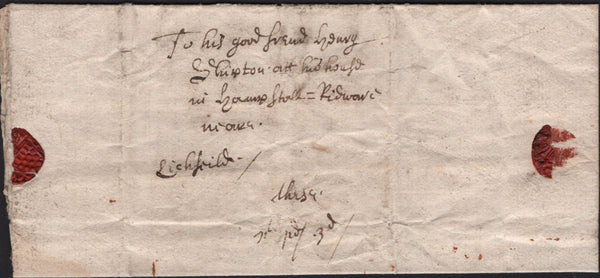 To his good frend Henry
att his house
in Hampstall = Ridware
neare.
Lichfeild /
these.
pd 3d /